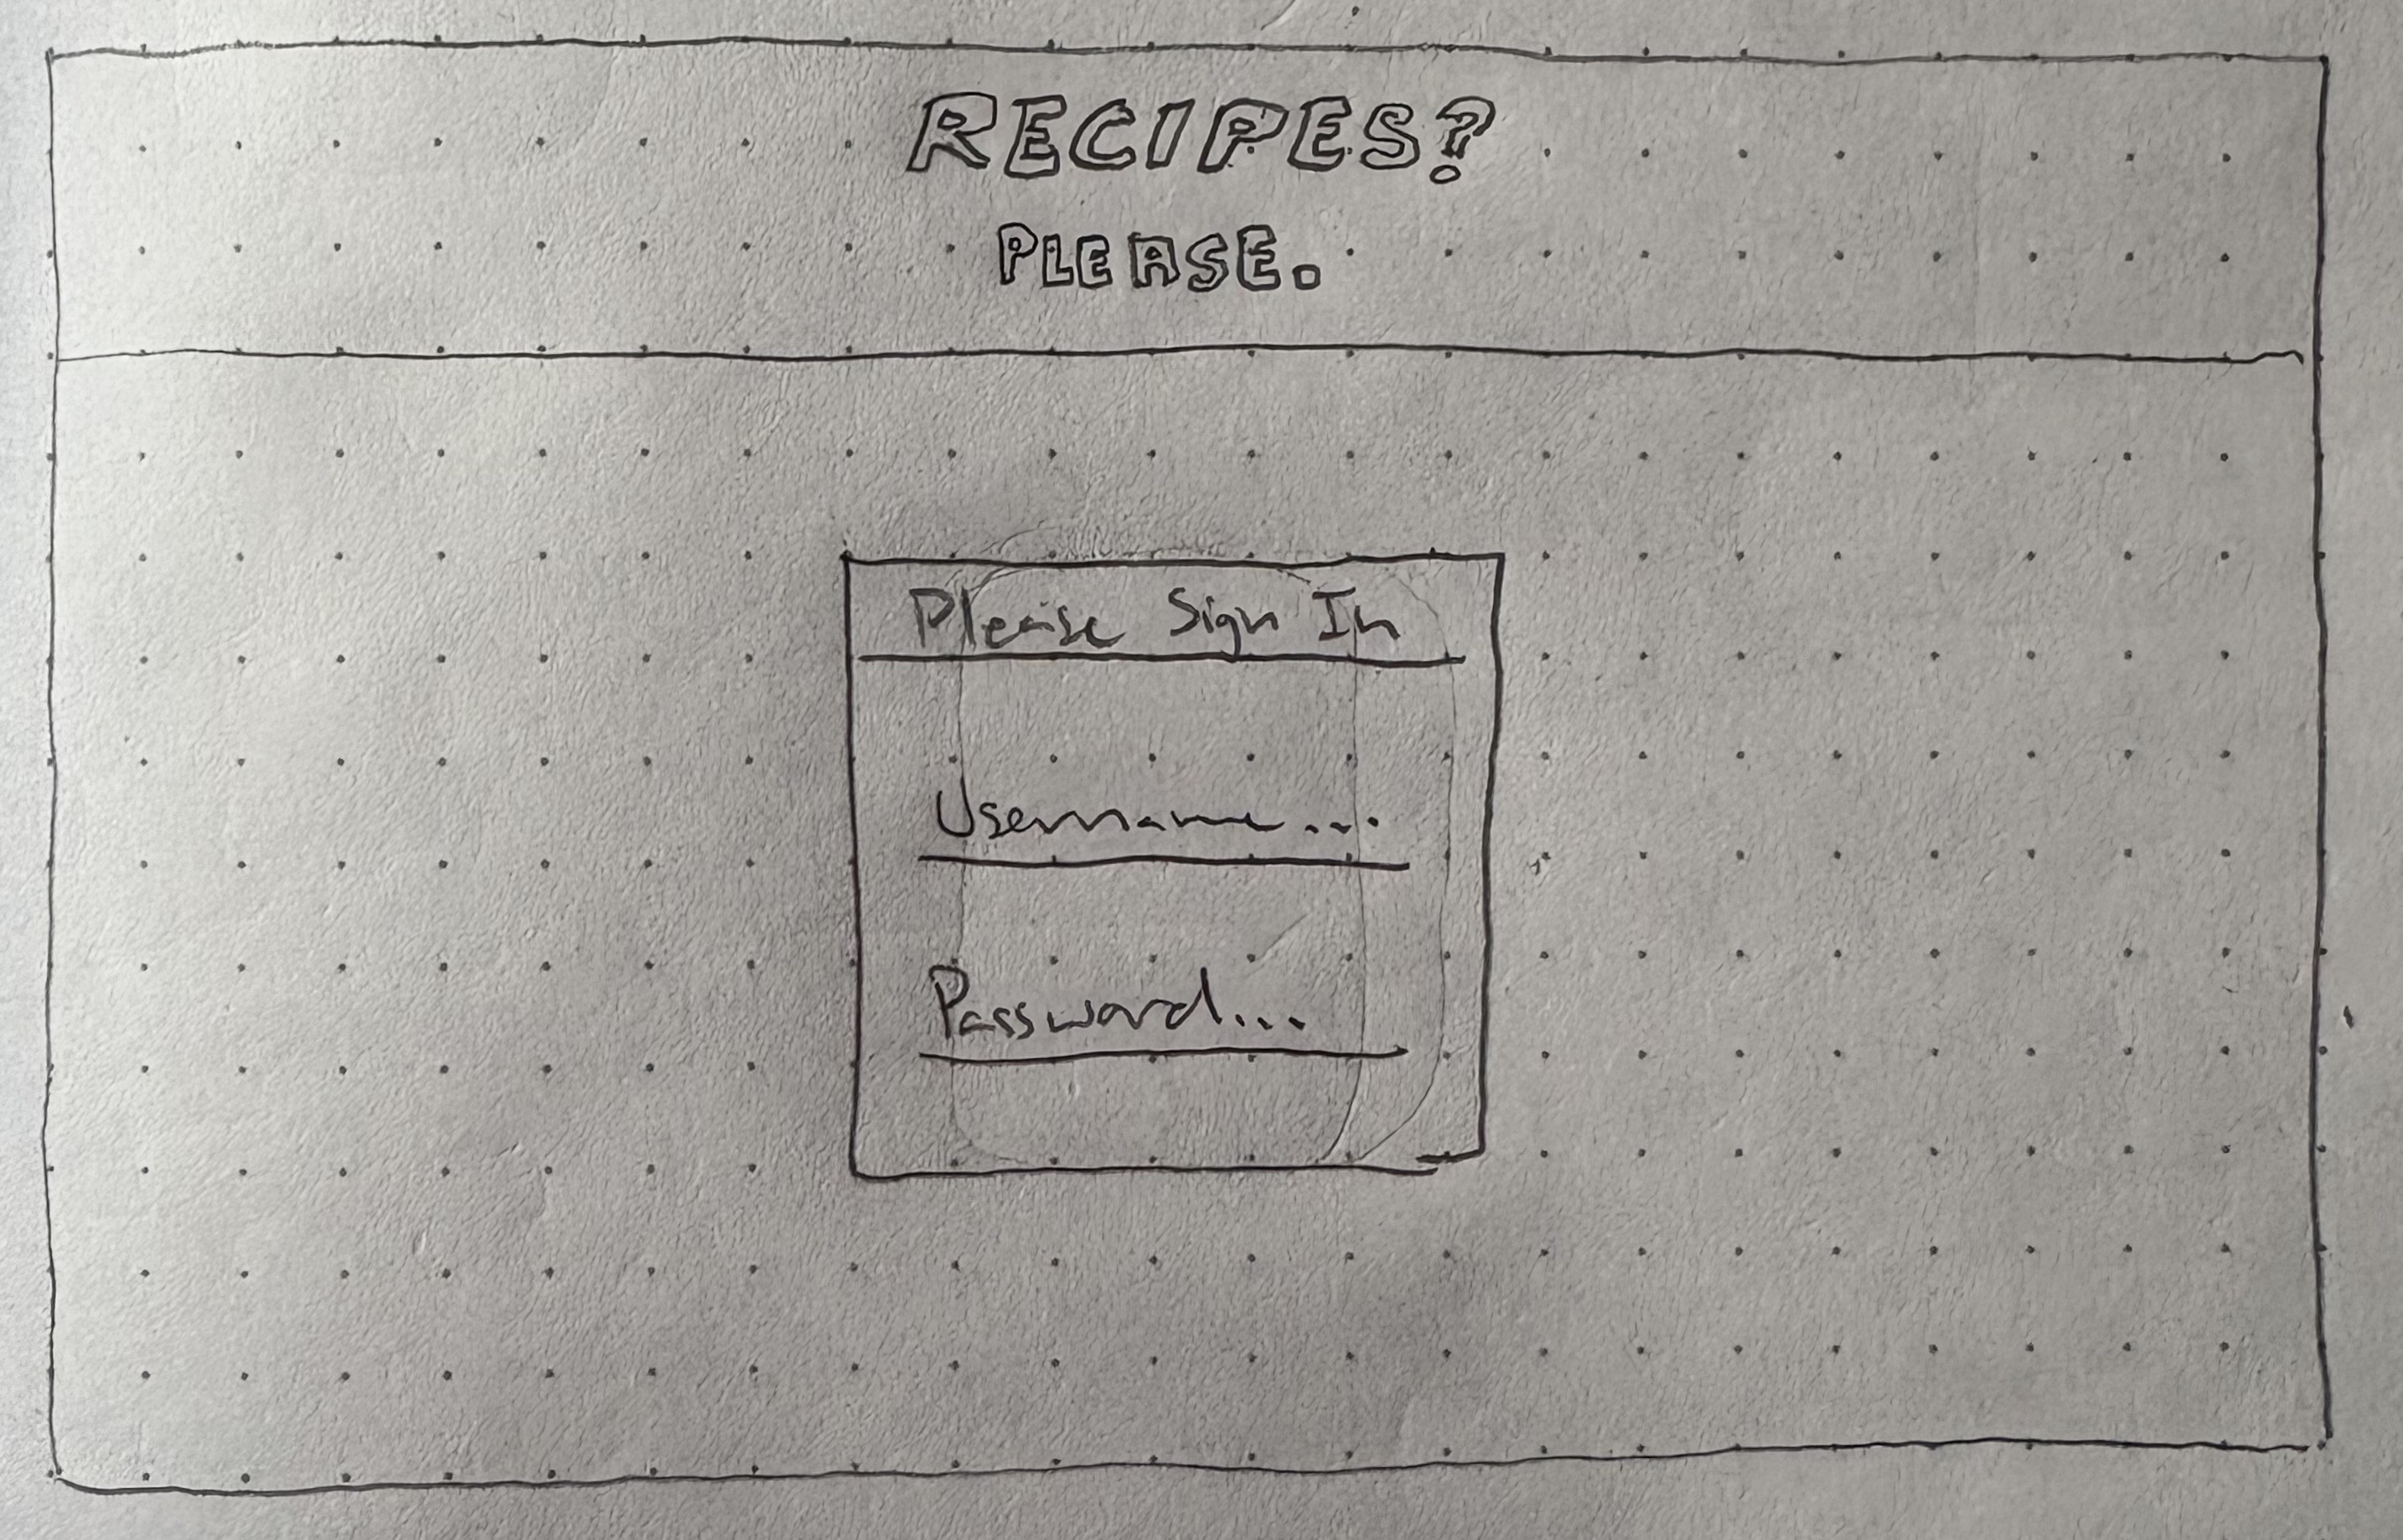 RECIPES?
PLEASE.
Please Sign In
Username...
Password...